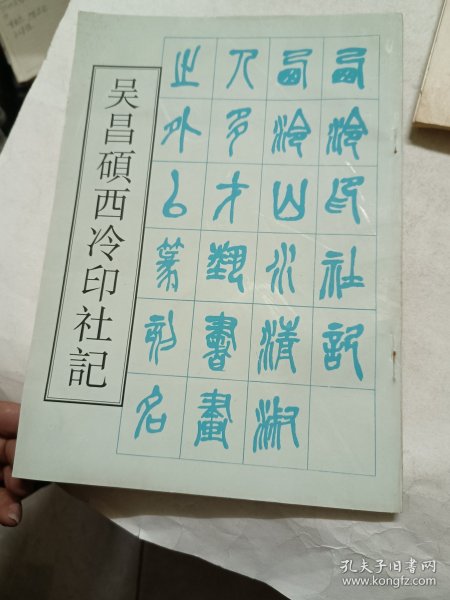 吴昌碩西冷印社記
西泠印社記
西泠山水清淑
人多才藝書畫
之外以篆刻名
孔夫子旧书网
www.kongfz.com